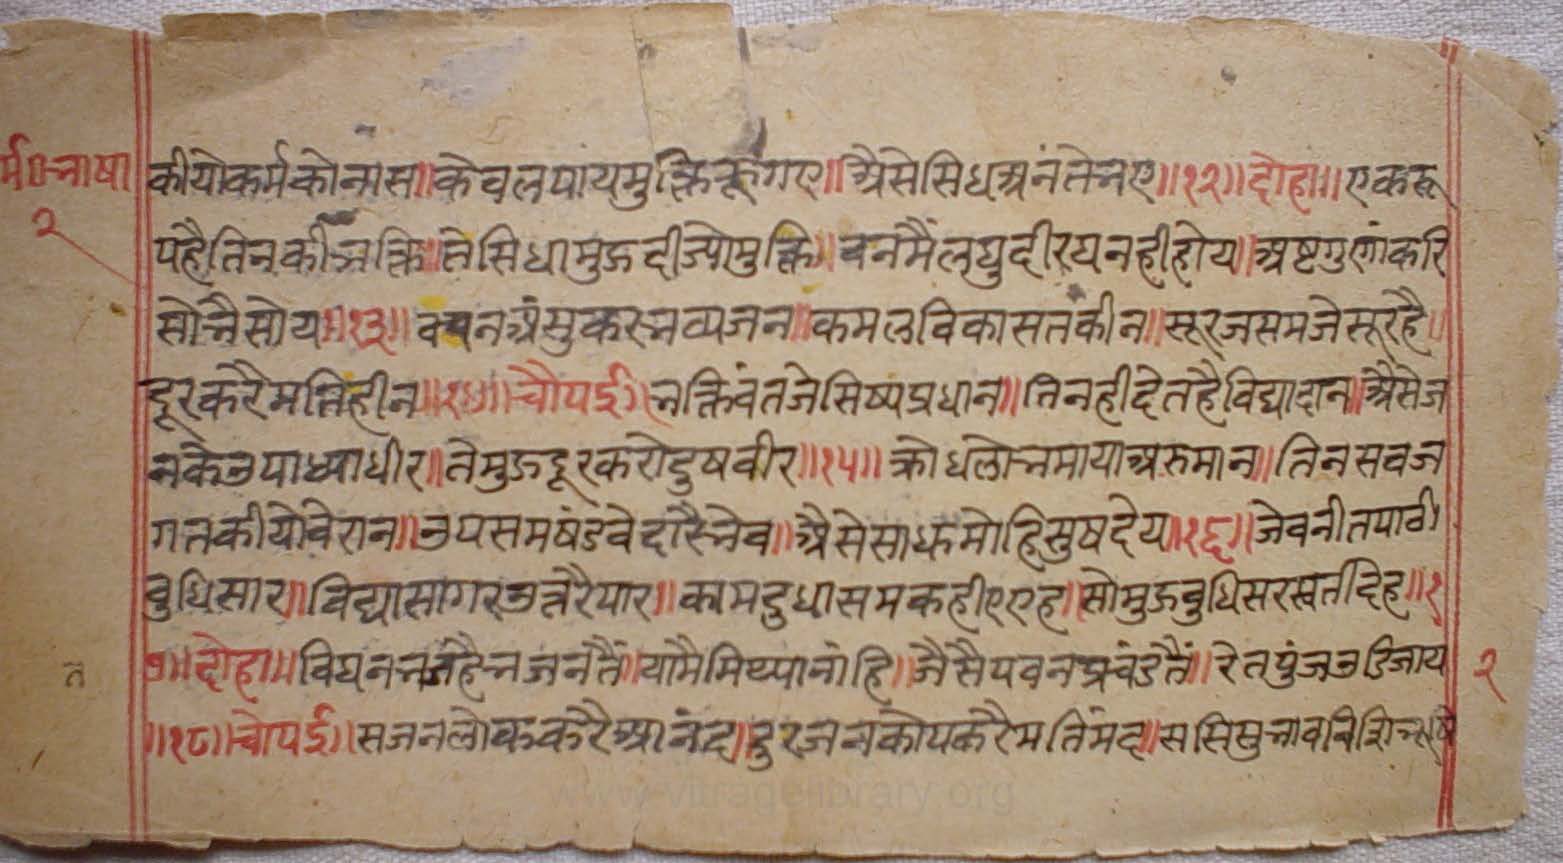 र्म॰भाषा
२
कीयो कर्म को नास॥ केवल पाय मुक्ति कूं गए॥ अैसे सिध अनंते भए॥१२॥ दोहा॥ एक रू
प है तिन की भक्ति॥ ते सिधा मुझ दीज्यो मुक्ति॥ वन मैं लघु दीरघ नही होय॥ अष्ट गुणां करि
सोभै सोय॥१३॥ वचन अंसु कर भव्यजन॥ कमल विकासत कीन॥ सूरज सम जे सूर है॥
दूर करै मति हीन॥१४॥ चौपई॥ भक्तिवंत जे सिष्य प्रधान॥ तिनही देत है विद्यादान॥ अैसे ज
न के उपाध्या धीर॥ ते मुझ दूर करो दुष वीर॥१५॥ क्रोध लोभ माया अरु मान॥ तिन सव ज
गत कीयो वेरान॥ उपसम षंडवे दाहै भेव॥ अैसे साध मोहि सुष देय॥१६॥ जे वनीत पावी
वुधि सार॥ विद्यासागर उतरै पार॥ काम दुधा सम कही ए एह॥ सो मुझ वुधि सरस्वती देह॥१
७॥ दोहा॥ विघन न है भजन तैं॥ या मै मिथ्या नोहि॥ जैसै पवन प्रचंड तैं॥ रेत पुंज उडि जाय
॥१८॥ चौपई॥ सजन लोक करै आनंद॥ दुरजन कोप करै मतिमंद॥ ससि सुभाव
त
२
www.vitragelibrary.org